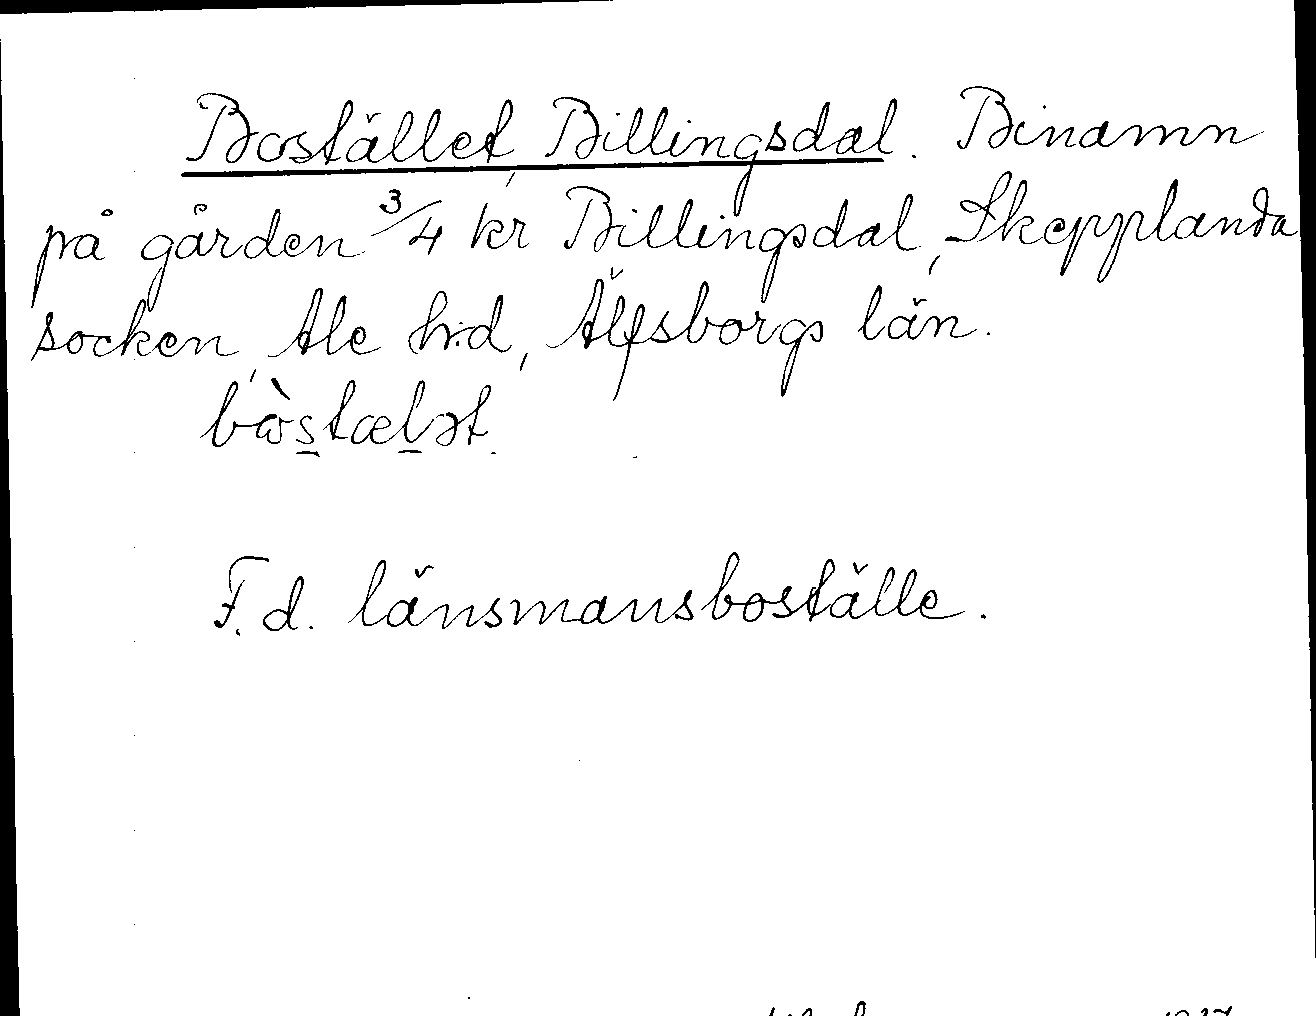 Bostället, Billingsdal. Binamn
på gården 3/4 kr Billingsdal, Skepplanda
socken, Ale h:d, Älfsborgs län.
bòstælət.
F.d. länsmansboställe.